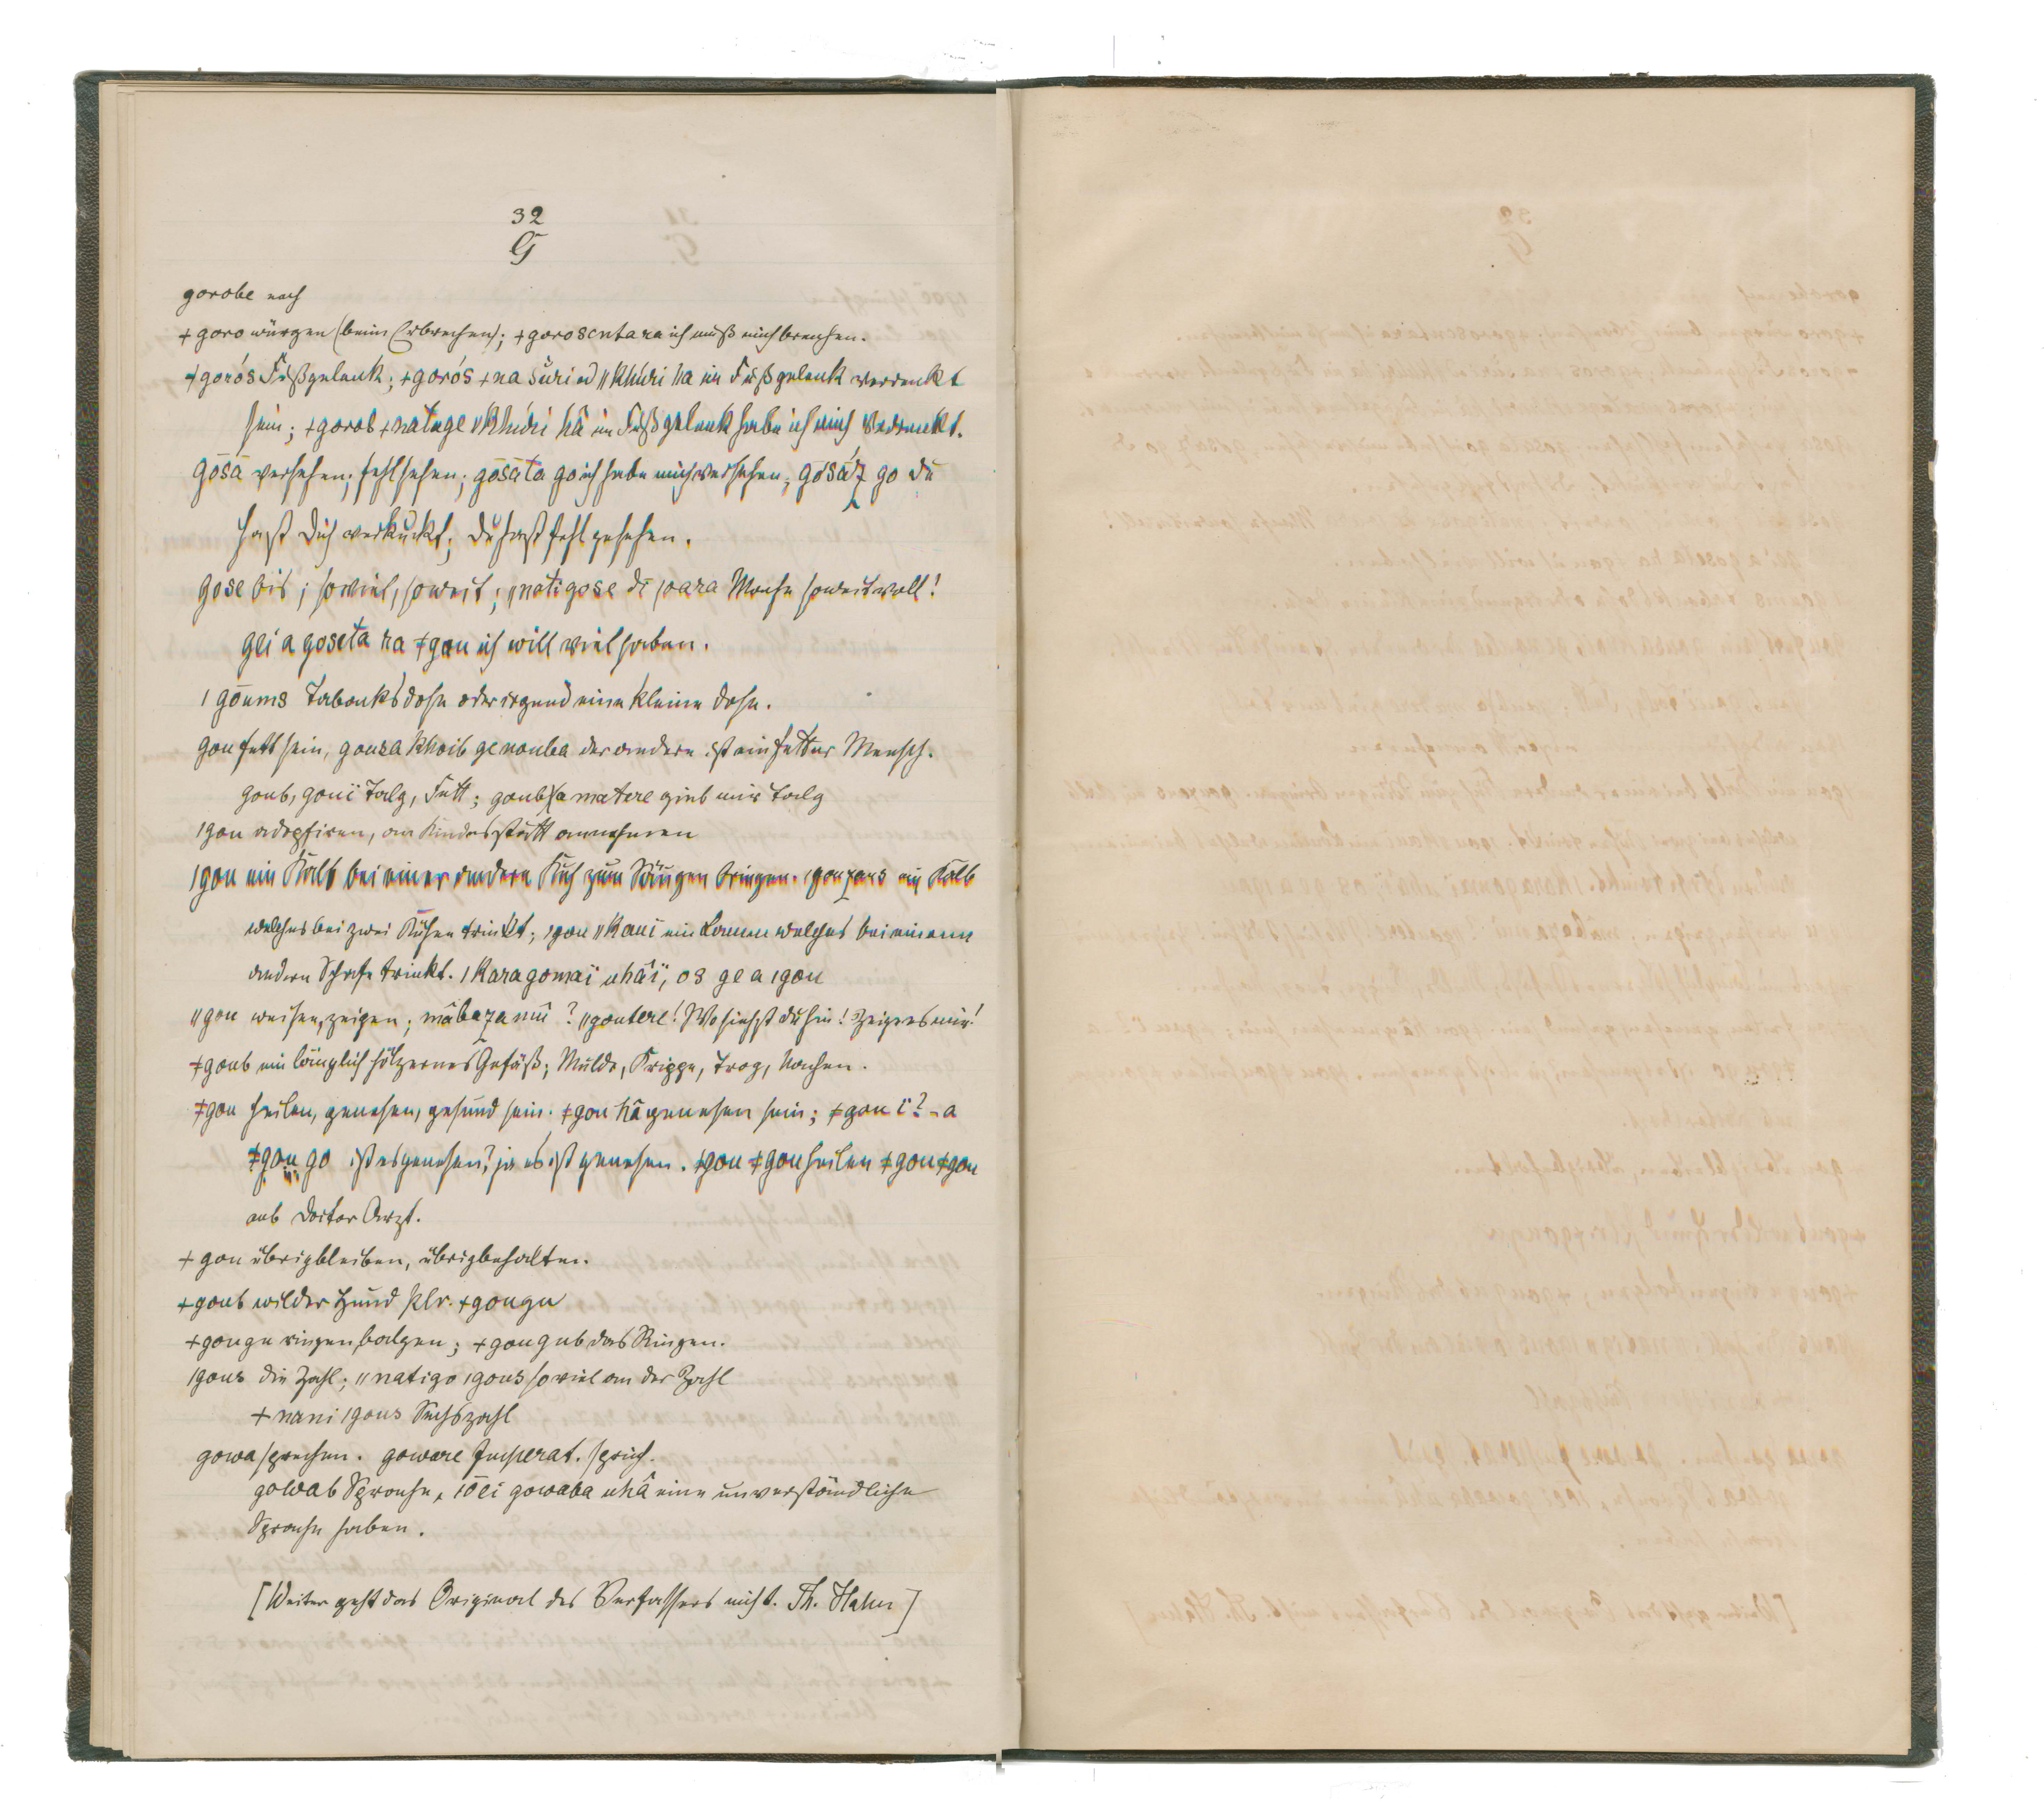 32
G
gorobe noch
ǂgoro würgen (beim Erbrechen); ǂgorosentara ich muß mich brechen.
ǂgorós Fußgelenk; ǂgorós ǂna sūri od ǁkhúri ha im Fußgelenk verrenkt
sein; ǂgorob ǂnatage ǁkhúri hâ im Fußgelenk habe ich mich verrenkt.
gōsā versehen, fehlsehen; gōsāta go ich habe mich versehen, gōsāɀ go du
hast dich verkuckt; du hast fehl gesehen.
gose bis; soviel, soweit; ǁnatigose di ǀoara Mache soweit voll!
gei a goseta ra ǂgou ich will viel haben.
ǀgōums Tabaksdose oder irgend eine kleine Dose.
gou fett sein, gousa khoib ge nouba der andere ist ein fetter Mensch.
goub, gouï Talg, Fett; goub ǀa matere gieb mir Talg
ǀgou adoptiren, an Kindesstatt annehmen
ǀgou ein Kalb bei einer andern Kuh zum Säugen bringen. ǀgouɀans ein Kalb
welches bei zwei Kühen trinkt; ǀgou ǁkauï ein Lamm welches bei einem
andern Schafe trinkt. ǀkaragomaï uhâï, os ge a ǀgou
ǁgou weisen, zeigen; mâbaɀa mû? ǁgoutere! Wo siehst du hin! Zeige es mir!
ǂgoub ein länglich hölzernes Gefäß; Mulde, Krippe, Trog, Nachen.
ǂgou heilen, genesen, gesund sein. ǂgou hâ genesen sein; ǂgou ï? - a
ǂgou go ist es genesen? ja es ist genesen. ǂgou ǂgou heilen ǂgouǂgou
aub Doctor Arzt.
ǂgou übrigbleiben, übrigbehalten.
ǂgoub wilder Hund Plr. ǂgougu
ǂgougu ringen, balgen; ǂgougub das Ringen.
ǀgous die Zahl; ǁnatigo ǀgous soviel an der Zahl
ǂnani ǀgous Sechszahl
gowa sprechen. goware Imperat. sprich.
gowab Sprache, ǀōei gowaba uhâ eine unverständliche
Sprache haben.
[Weiter geht das Original des Verfassers nicht. Th. Hahn]